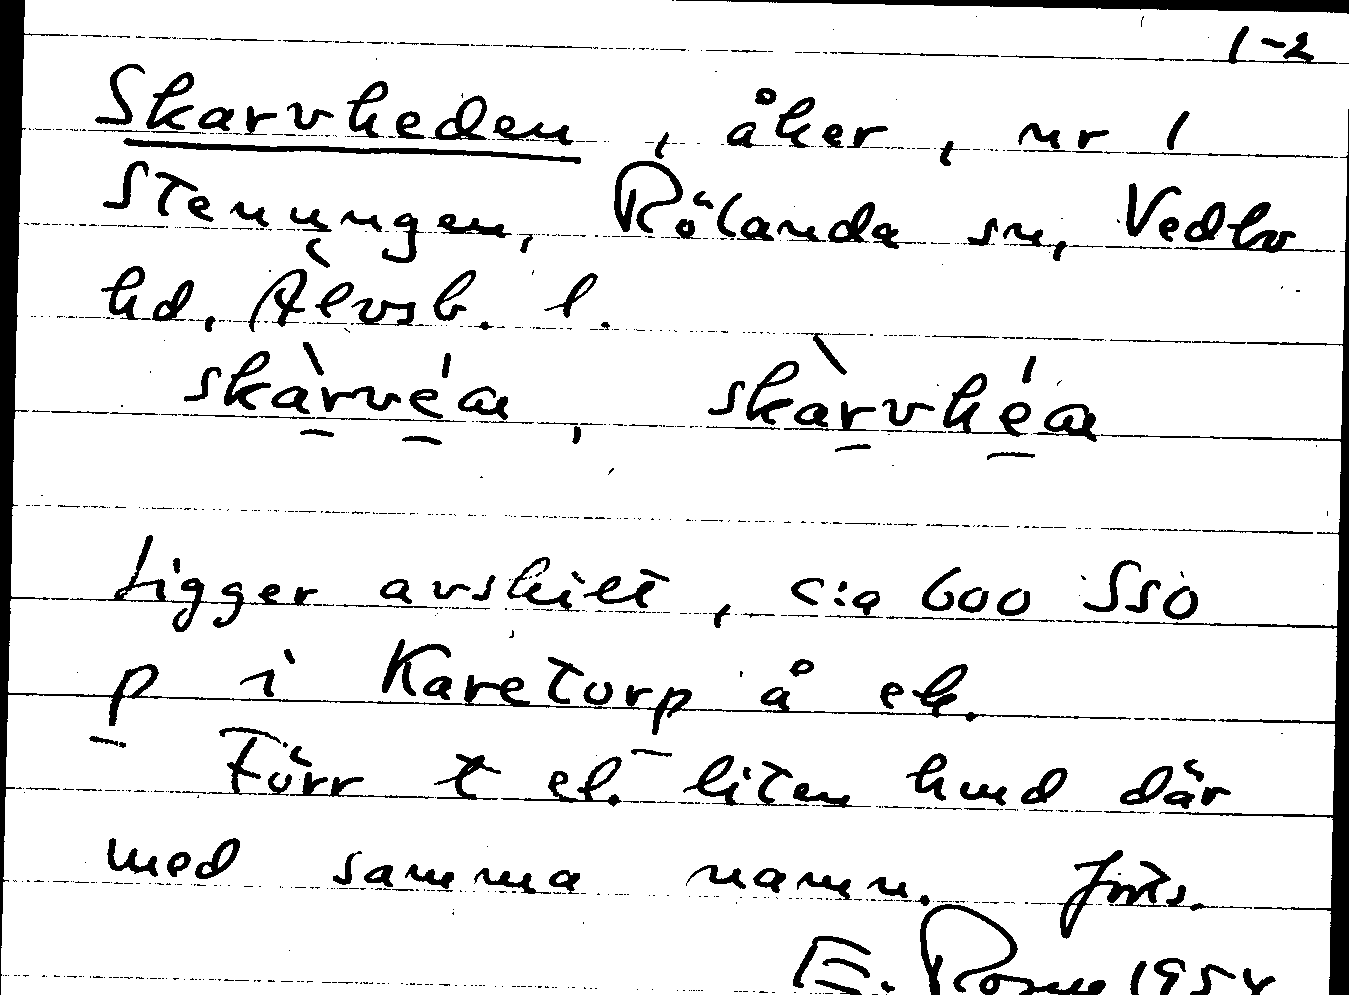 1-2
Skarvheden, åker, nr 1
Stenungen, Rölanda sn, Vedbo
hd, Älvsb. l.
skàrvéa, skàrvhéa
Ligger avskilt, c:a 600 SSO
p i Karetorp å ek.
Förr t el. liten hmd där
med samma namn. Jmts.
E. 1954